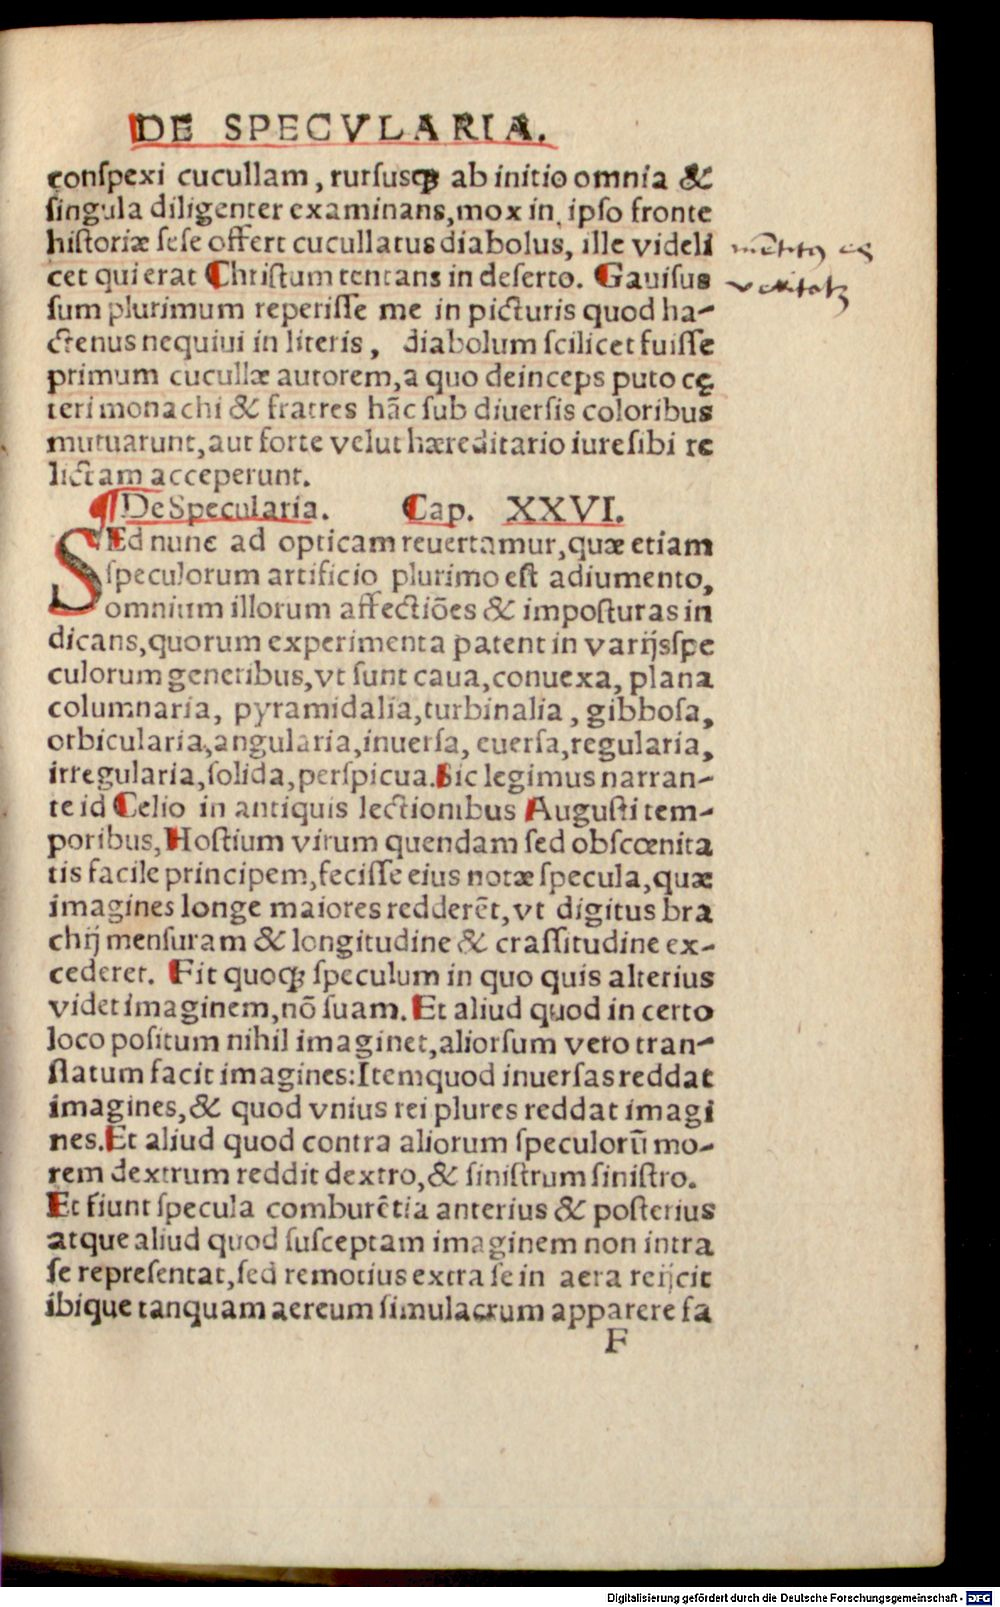 DE SPECVLARIA.
conſpexi cucullam, rurſusqȝ ab initio omnia &
ſingula diligenter examinans, mox in ipſo fronte
hiſtoriæ ſeſe offert cucullatus diabolus, ille videli
cet qui erat Chriſtum tentans in deſerto. Gauiſus
ſum plurimum reperiſſe me in picturis quod ha-
ctenus nequiui in literis, diabolum ſcilicet fuiſſe
primum cucullæ autorem, a quo deinceps puto cę
teri monachi & fratres hãc ſub diuerſis coloribus
mutuarunt, aut forte velut hæreditario iure ſibi re
lictam acceperunt.
¶ De Specularia. Cap. XXVI.
SEd nunc ad opticam reuertamur, quæ etiam
ſpeculorum artificio plurimo eſt adiumento,
omnium illorum affectiões & impoſturas in
dicans, quorum experimenta patent in varijs ſpe
culorum generibus, vt ſunt caua, conuexa, plana
columnaria, pyramidalia, turbinalia, gibboſa,
orbicularia, angularia, inuerſa, euerſa, regularia,
irregularia, ſolida, perſpicua. Sic legimus narran-
te id Celio in antiquis lectionibus Auguſti tem-
poribus, Hoſtium virum quendam ſed obſcœnita
tis facile principem, feciſſe eius notæ ſpecula, quæ
imagines longe maiores redderẽt, vt digitus bra
chij menſuram & longitudine & craſſitudine ex-
cederet. Fit quoqȝ ſpeculum in quo quis alterius
videt imaginem, nõ ſuam. Et aliud quod in certo
loco poſitum nihil imaginet, aliorſum vero tran-
ſlatum facit imagines: Item quod inuerſas reddat
imagines, & quod vnius rei plures reddat imagi
nes. Et aliud quod contra aliorum ſpeculorũ mo-
rem dextrum reddit dextro, & ſiniſtrum ſiniſtro.
Et fiunt ſpecula comburẽtia anterius & poſterius
atque aliud quod ſuſceptam imaginem non intra
ſe repreſentat, ſed remotius extra ſe in aera reijcit
ibique tanquam aereum ſimulacrum apparere fa
F
Digitalisierung gefördert durch die Deutsche Forschungsgemeinschaft - DFG